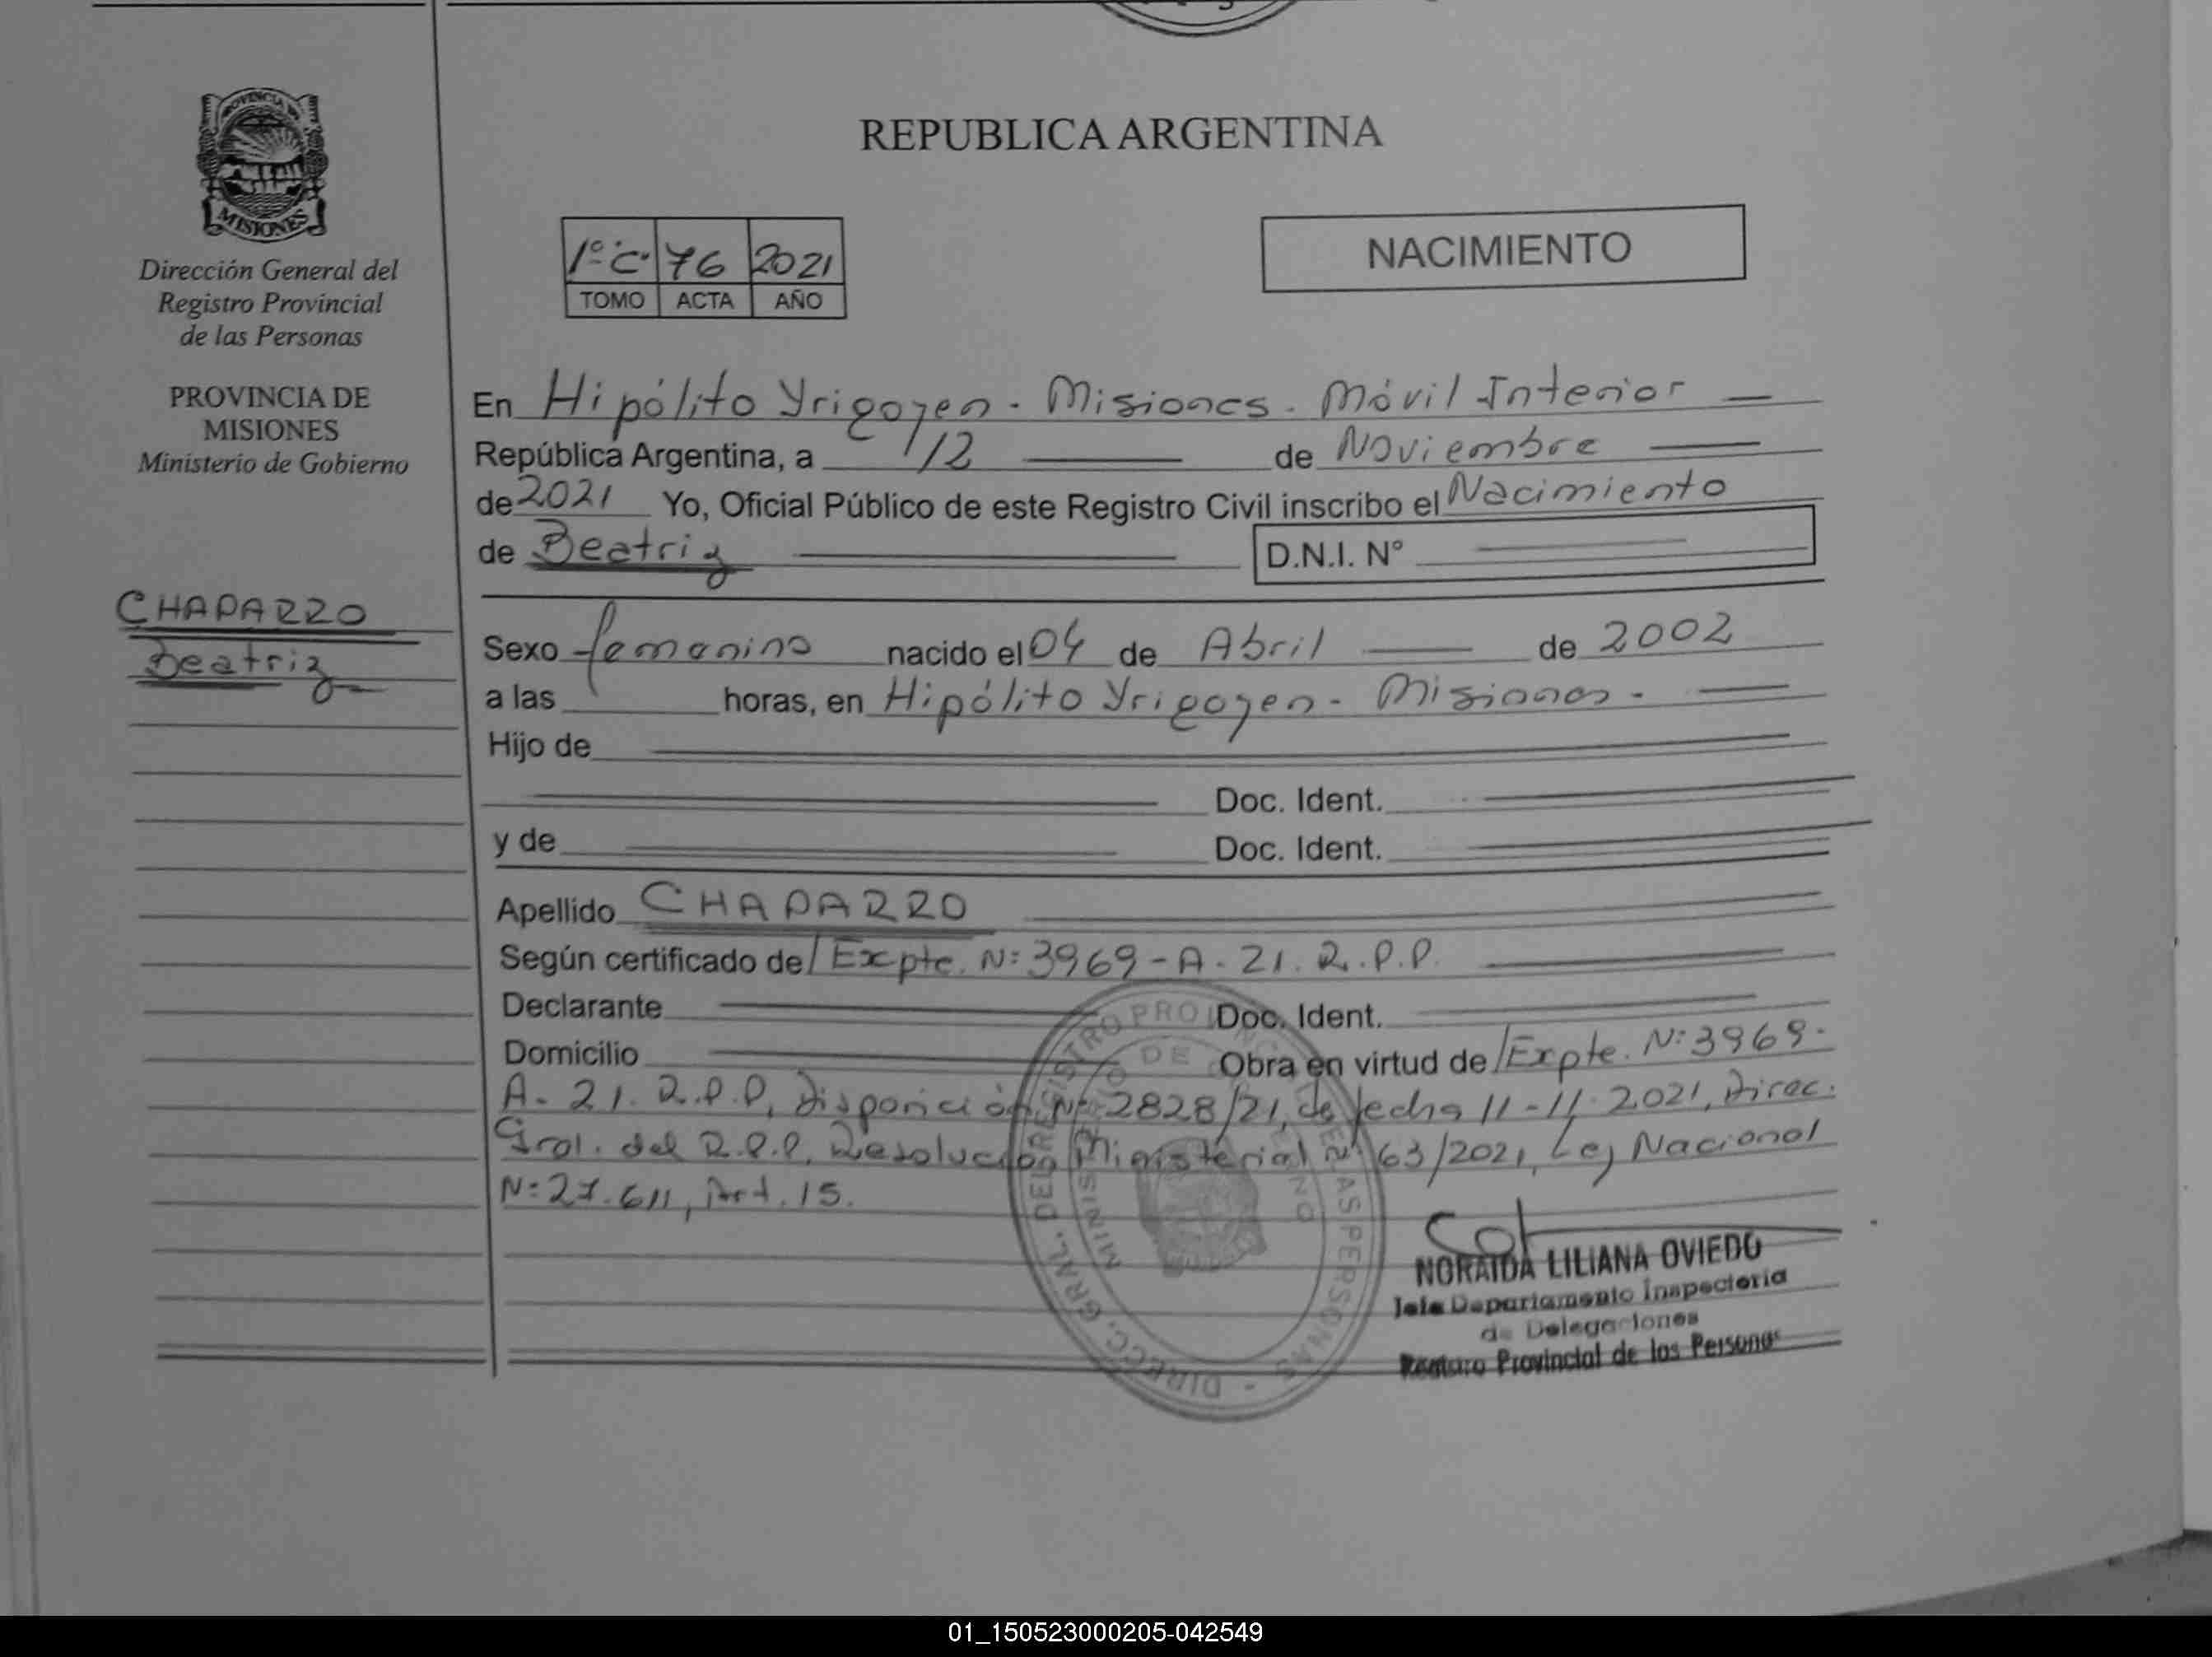 REPUBLICA ARGENTINA
PROVINCIA DE
MISIONES
Dirección General del
Registro Provincial
de las Personas
PROVINCIA DE
MISIONES
Ministerio de Gobierno
CHAPARRO
Beatriz
1º C. 76 2021
TOMO ACTA AÑO
NACIMIENTO
En Hipólito Yrigoyen - Misiones - Móvil Interior
República Argentina, a 12 de Noviembre
de 2021 Yo, Oficial Público de este Registro Civil inscribo el Nacimiento
de Beatriz D.N.I. N°
Sexo femenino nacido el 04 de Abril de 2002
a las horas, en Hipólito Yrigoyen - Misiones -
Hijo de
Doc. Ident.
y de Doc. Ident.
Apellido CHAPARRO
Según certificado de Expte. Nº 3969 - A - 21. R.P.P.
Declarante Doc. Ident.
Domicilio Obra en virtud de Expte. Nº 3969-
A- 21. R.P.P, Disposición Nº 2828/21, de fecha 11-11-2021, Direc.
Gral. del R.P.P, Resolución Ministerial Nº 63/2021, Ley Nacional
Nº 27.611, Art. 15.
DIRECC. GRAL. DEL REGISTRO PROVINCIAL DE LAS PERSONAS -
MINISTERIO DE GOBIERNO
NORAIDA LILIANA OVIEDO
Jefe Departamento Inspectoria
de Delegaciones
Registro Provincial de las Personas
01_150523000205-042549